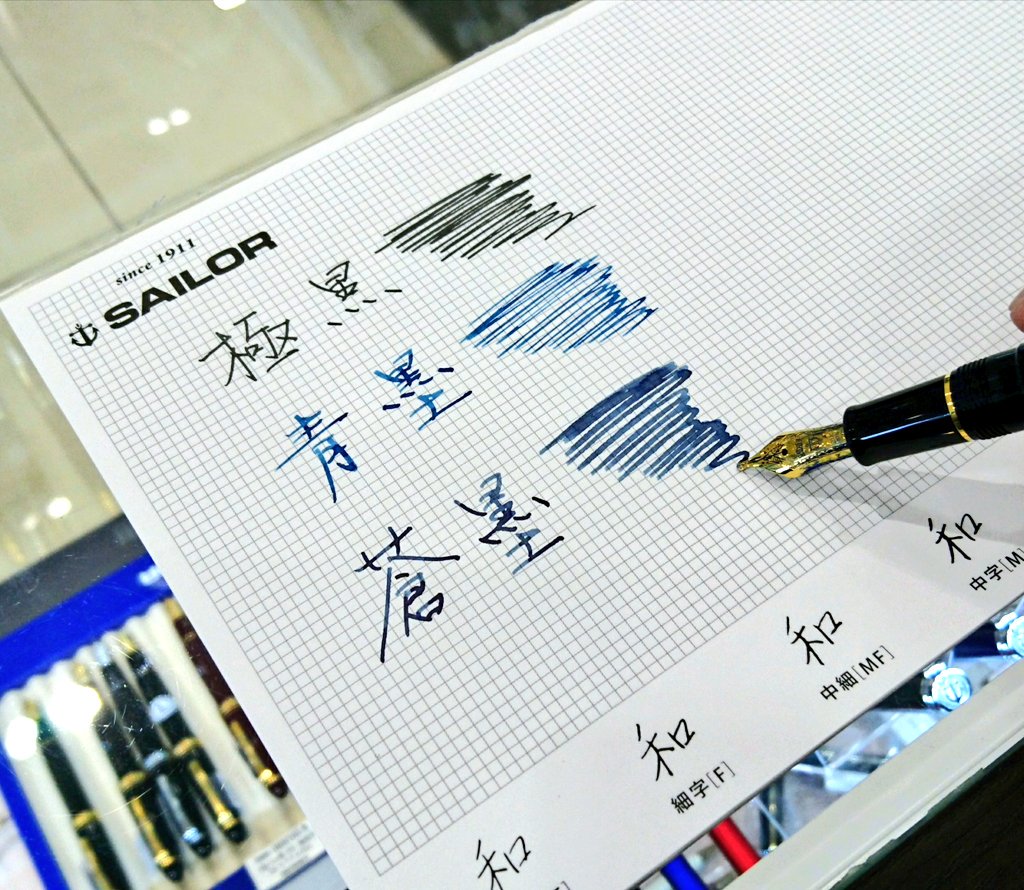 since 1911
SAILOR
極黒
青墨
蒼墨
和
中字[M
和
中細[MF]
和
細字[F]
和